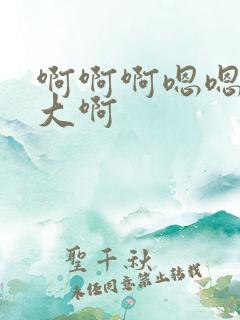 啊啊啊嗯嗯
大啊
聖千秋
未经同意禁止转载